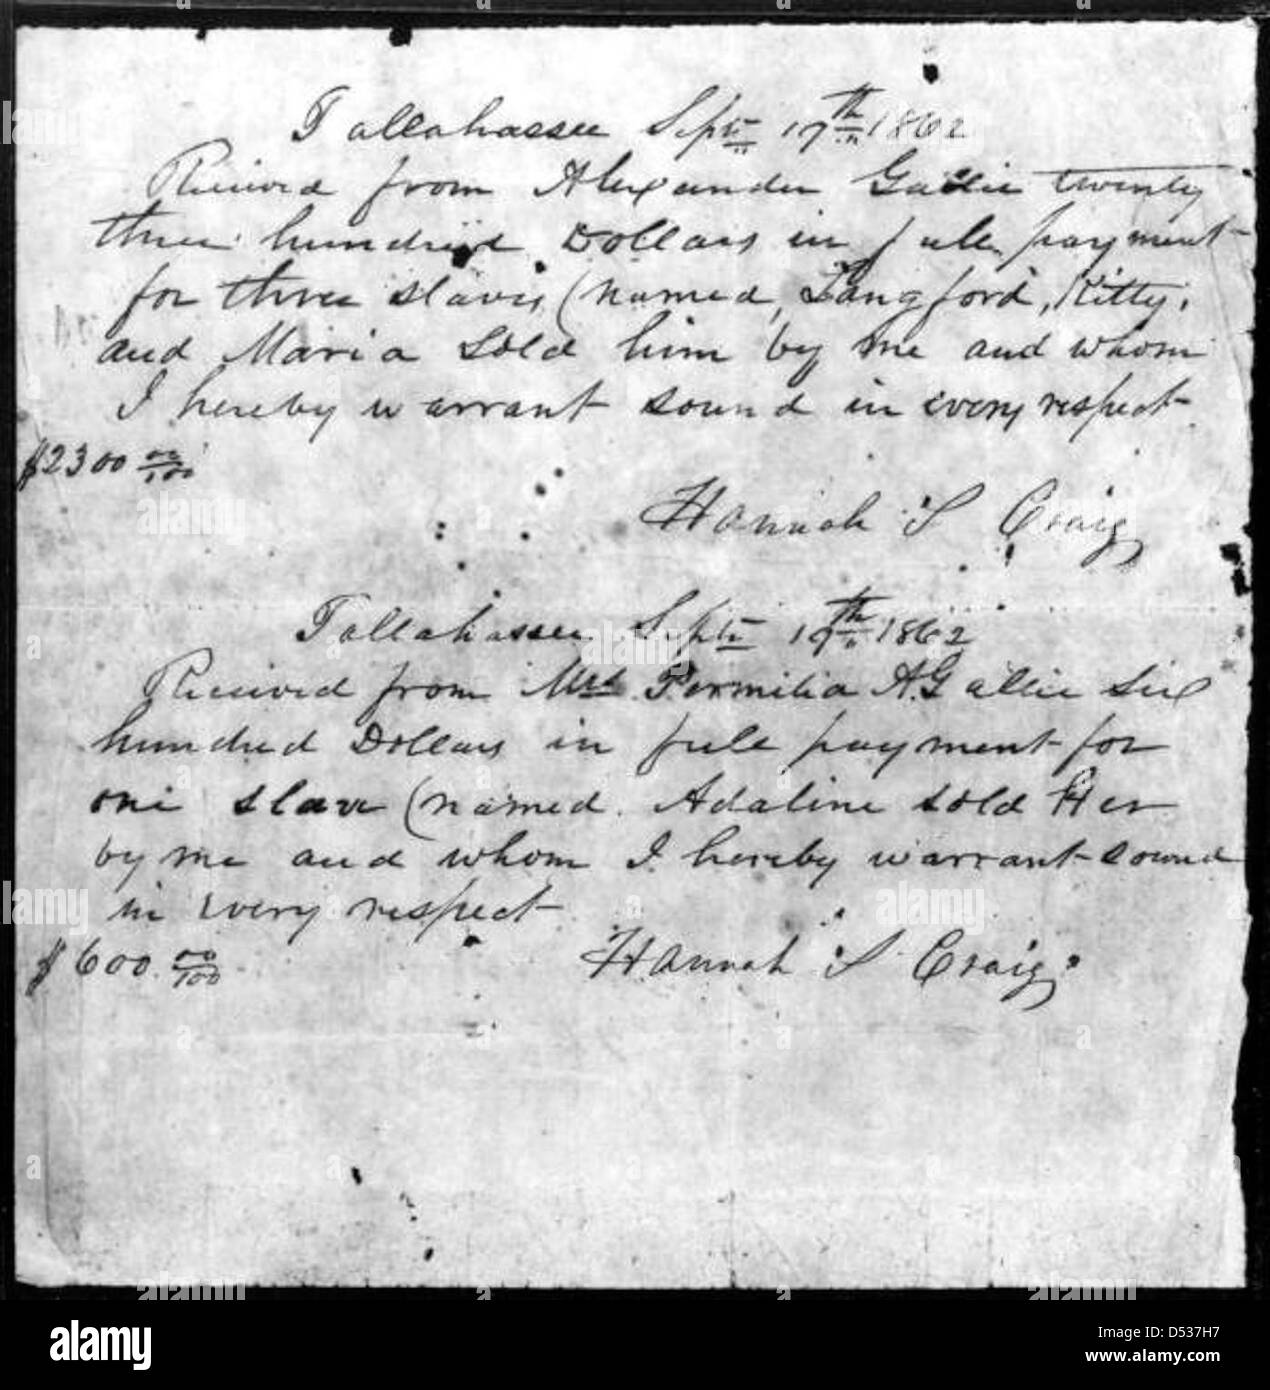 Tallahassee Sept 17th 1862
Received from Alexander Gallie twenty
three hundred Dollars in full payment
for three slaves, (named, Langford, Kitty,
and Maria sold him by me and whom
I hereby warrant sound in every respect
$2300 00/100
Hannah S Craig,
Tallahassee Sept 17th 1862
Received from Mrs Permilia A. Gallie Six
hundred Dollars in full payment for
one slave (named. Adaline sold Her
by me and whom I hereby warrant sound
in every respect
$600. 00/100
Hannah S Craig,
alamy
Image ID: D537H7
www.alamy.com